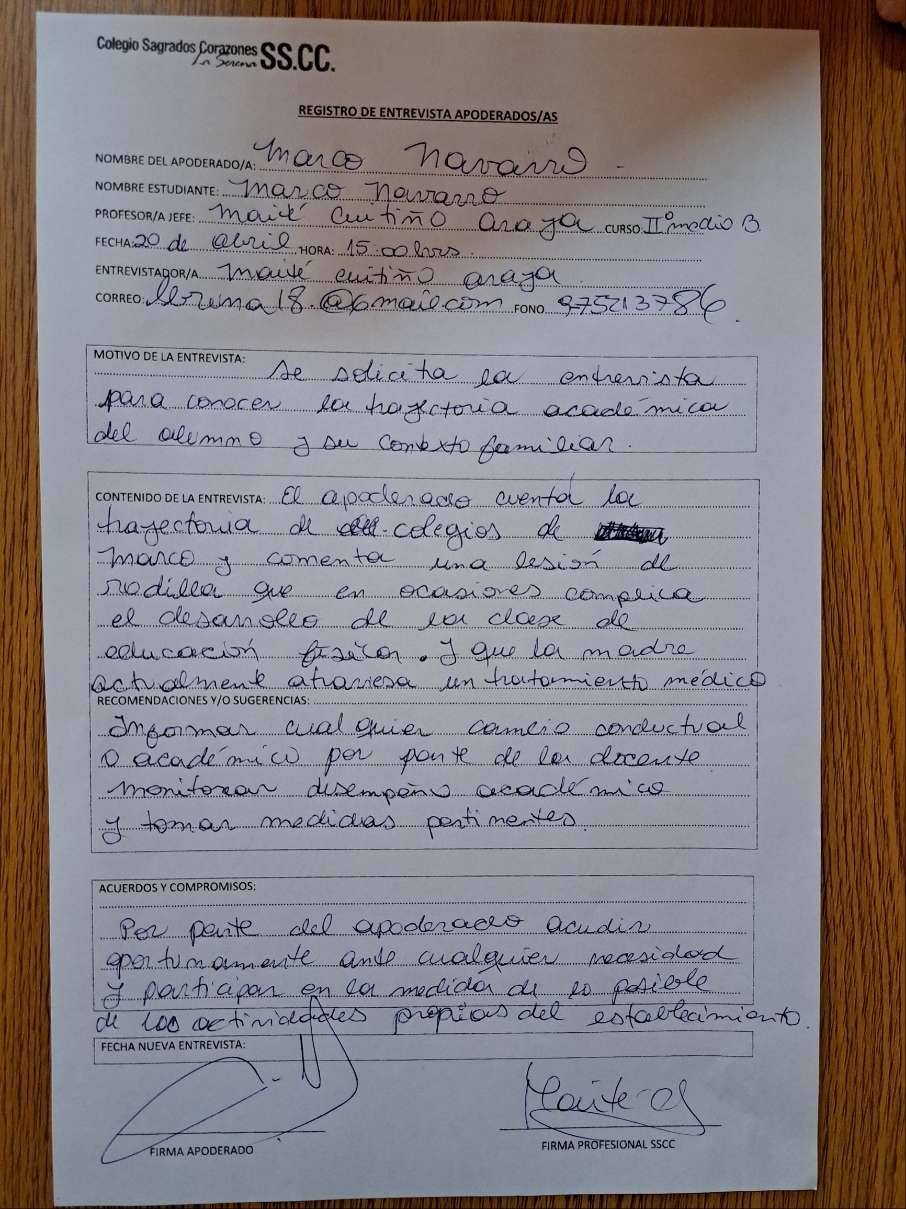 Colegio Sagrados Corazones SS.CC.
La Serena
REGISTRO DE ENTREVISTA APODERADOS/AS
NOMBRE DEL APODERADO/A: Marco Navarro
NOMBRE ESTUDIANTE: Marco Navarro
PROFESOR/A JEFE: Maité Cutiño Araya CURSO: IIº medio B.
FECHA: 20 de abril HORA: 15:00 hrs.
ENTREVISTADOR/A Maité Cutiño Araya
CORREO: 18.@Gmail.com FONO 975213786
MOTIVO DE LA ENTREVISTA:
Se solicita la entrevista
para conocer la trayectoria académica
del alumno y su contexto familiar.
CONTENIDO DE LA ENTREVISTA: El apoderado cuenta la
trayectoria de colegios de
Marco y comenta una lesión de
rodilla que en ocasiones complica
el desarrollo de la clase de
educación física. Y que la madre
actualmente atraviesa un tratamiento médico
RECOMENDACIONES Y/O SUGERENCIAS:
Informar cualquier cambio conductual
o académico por parte de los docente
monitorear desempeño académico
y tomar medidas pertinentes.
ACUERDOS Y COMPROMISOS:
Por parte del apoderado acudir
oportunamente ante cualquier necesidad
y participar en la medida de lo posible
de las actividades propias del establecimiento.
FECHA NUEVA ENTREVISTA:
FIRMA APODERADO
FIRMA PROFESIONAL SSCC